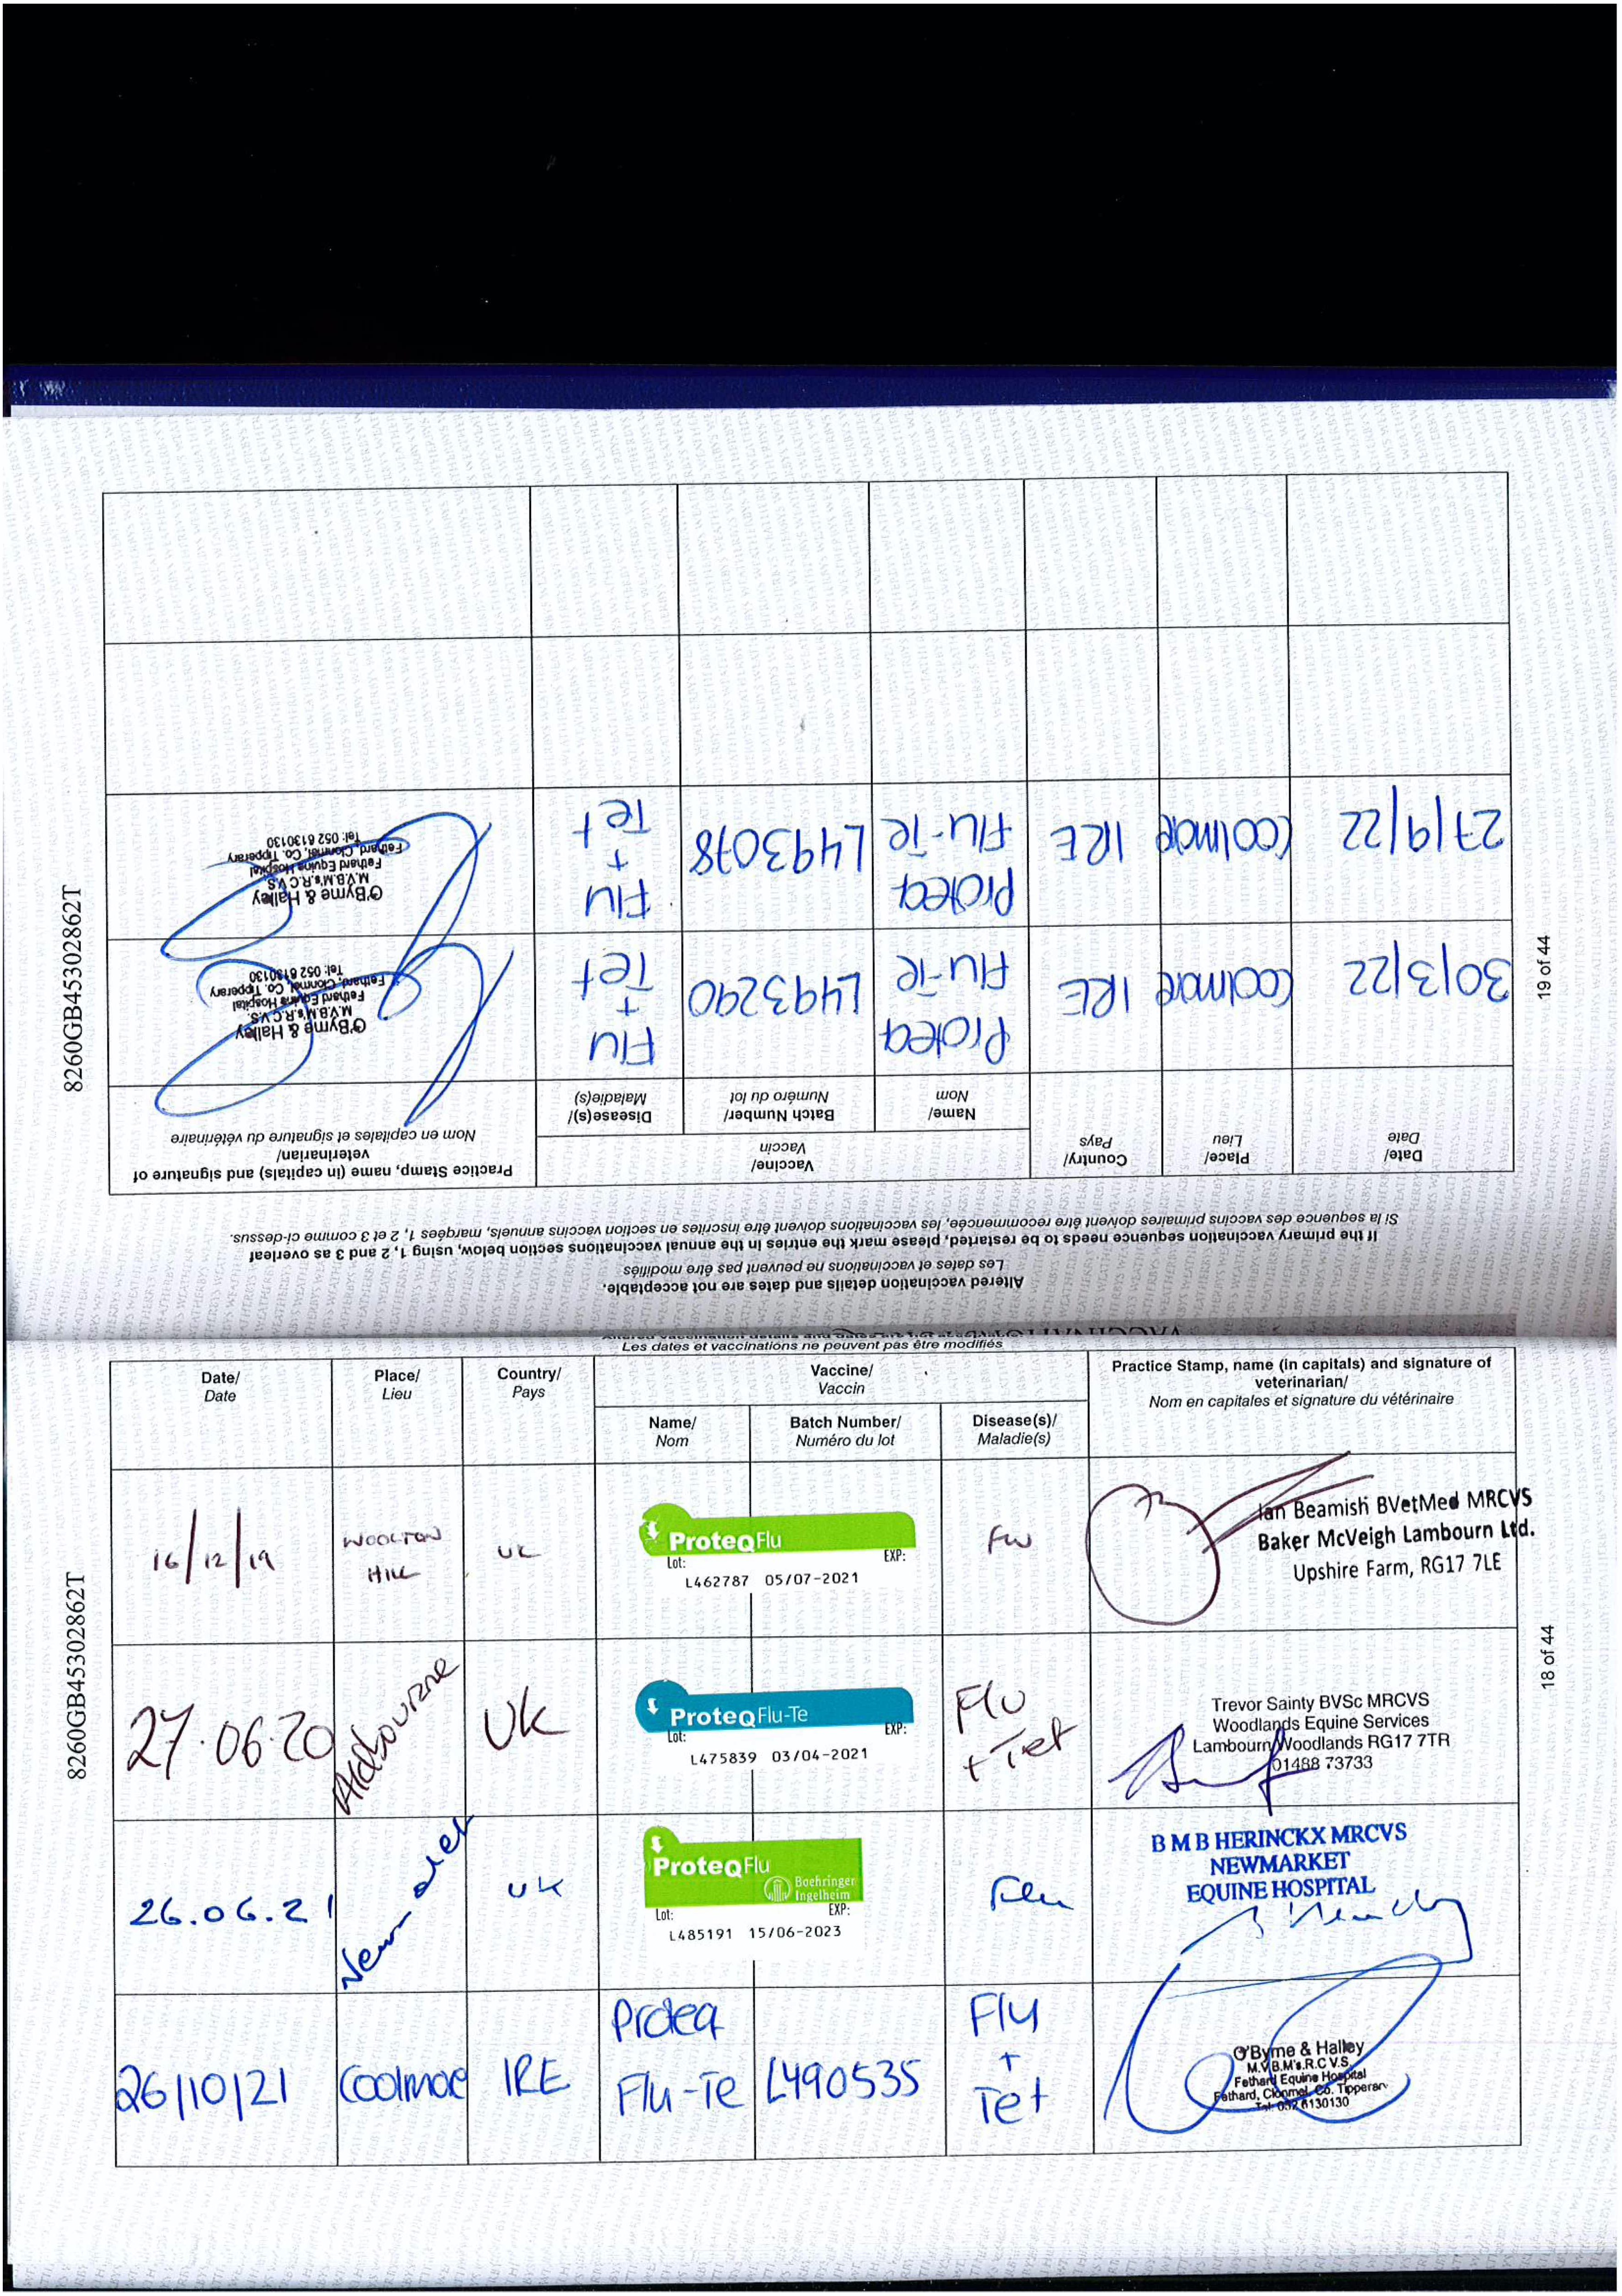 Les dates et vaccinations ne peuvent pas être modifiés
Date/
Date
Place/
Lieu
Country/
Pays
Vaccine/
Vaccin
Name/
Nom
Batch Number/
Numéro du lot
Disease(s)/
Maladie(s)
Practice Stamp, name (in capitals) and signature of
veterinarian/
Nom en capitales et signature du vétérinaire
16/12/19
WOOLTON
HILL
UK
ProteqFlu
Lot: EXP:
L462787 05/07-2021
Flu
Ian Beamish BVetMed MRCVS
Baker McVeigh Lambourn Ltd.
Upshire Farm, RG17 7LE
27.06.20
Aldbourne
UK
ProteqFlu-Te
Lot: EXP:
L475839 03/04-2021
Flu
+ Tet
Trevor Sainty BVSc MRCVS
Woodlands Equine Services
Lambourn Woodlands RG17 7TR
01488 73733
26.06.21
Newmarket
UK
ProteqFlu
Boehringer
Ingelheim
Lot: EXP:
L485191 15/06-2023
Flu
B M B HERINCKX MRCVS
NEWMARKET
EQUINE HOSPITAL
26/10/21
Coolmore
IRE
Proteq
Flu-Te
L490535
Flu
+
Tet
O'Byrne & Halley
M.V.B.M's.R.C.V.S.
Fethard Equine Hospital
Fethard, Clonmel, Co. Tipperary
Tel: 052 6130130
8260GB45302862T
18 of 44
Altered vaccination details and dates are not acceptable.
Les dates et vaccinations ne peuvent pas être modifiés
If the primary vaccination sequence needs to be restarted, please mark the entries in the annual vaccinations section below, using 1, 2 and 3 as overleaf
Si la sequence des vaccins primaires doivent être recommencée, les vaccinations doivent être inscrites en section vaccins annuels, marquées 1, 2 et 3 comme ci-dessus.
Date/
Date
Place/
Lieu
Country/
Pays
Vaccine/
Vaccin
Name/
Nom
Batch Number/
Numéro du lot
Disease(s)/
Maladie(s)
Practice Stamp, name (in capitals) and signature of
veterinarian/
Nom en capitales et signature du vétérinaire
30/3/22
Coolmore
IRE
Proteq
Flu-Te
L493290
Flu
+
Tet
O'Byrne & Halley
M.V.B.M's.R.C.V.S.
Fethard Equine Hospital
Fethard, Clonmel, Co. Tipperary
Tel: 052 6130130
27/9/22
Coolmore
IRE
Proteq
Flu-Te
L493078
Flu
+
Tet
O'Byrne & Halley
M.V.B.M's.R.C.V.S.
Fethard Equine Hospital
Fethard, Clonmel, Co. Tipperary
Tel: 052 6130130
8260GB45302862T
19 of 44